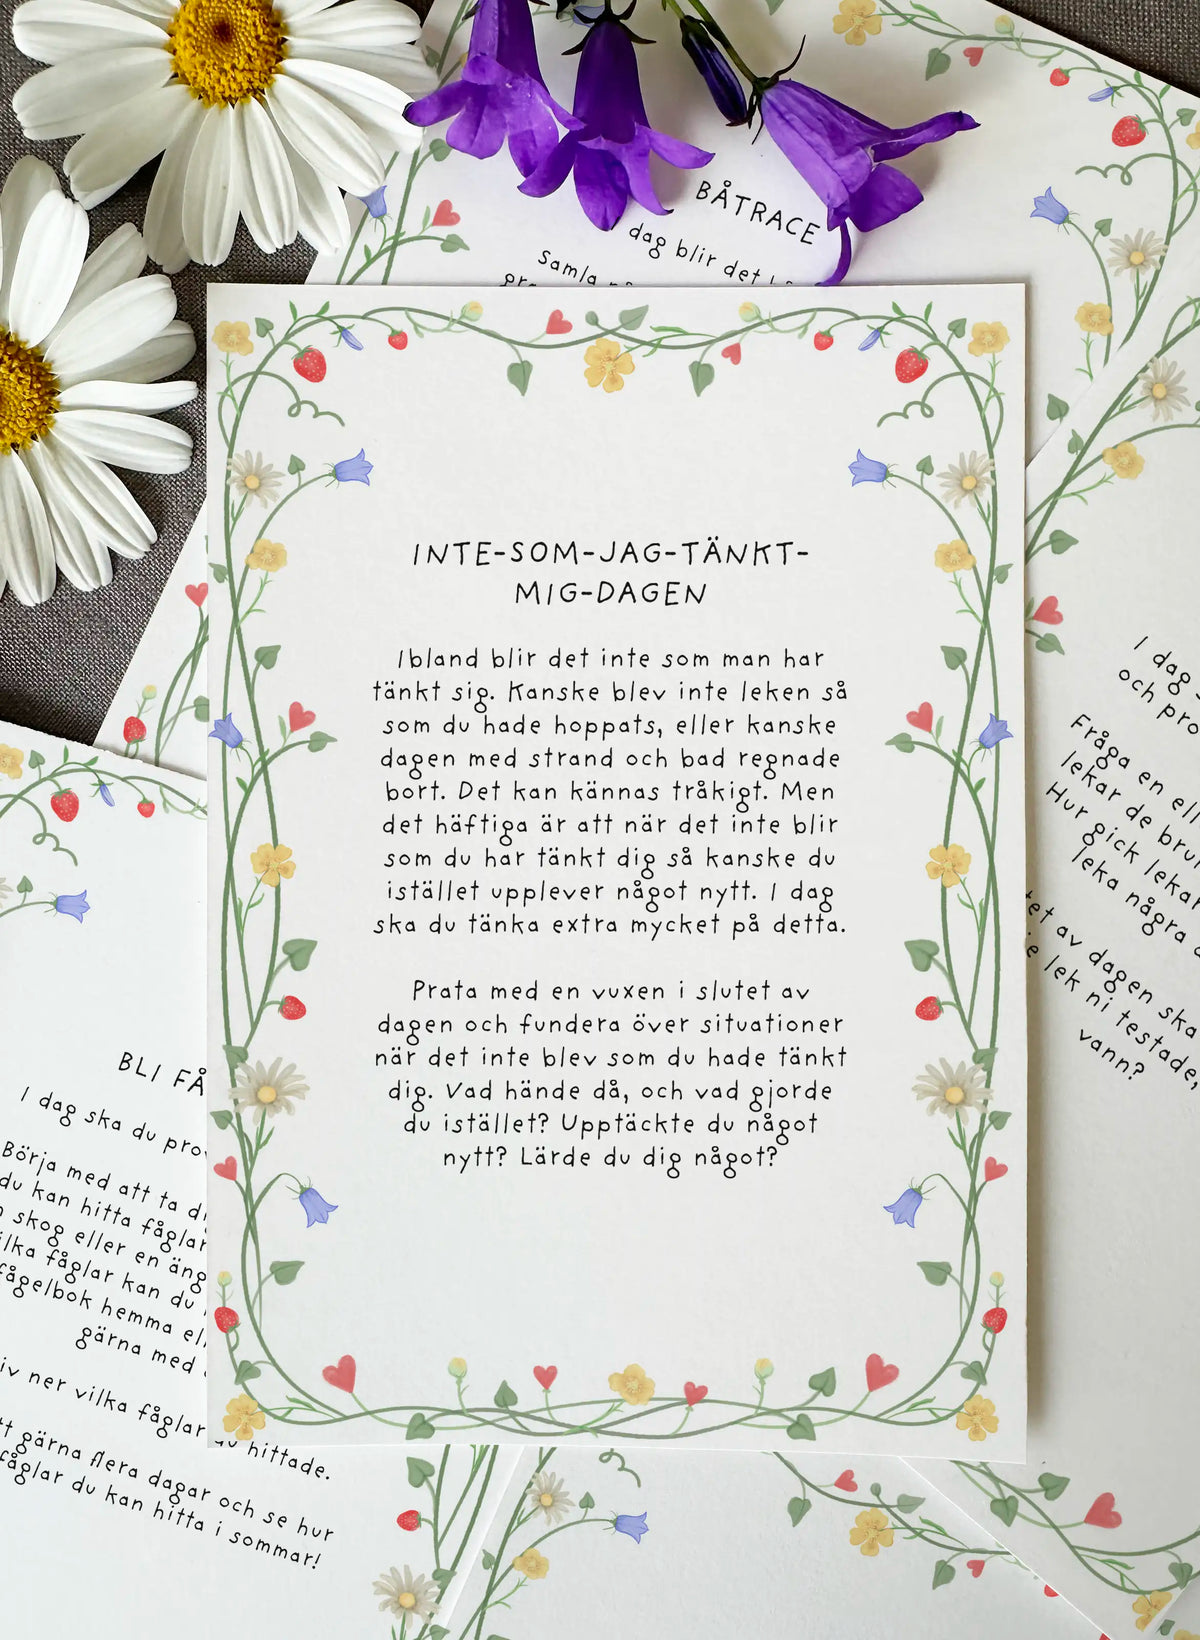 BÅTRACE
dag blir det
Samla
INTE-SOM-JAG-TÄNKT-
MIG-DAGEN
Ibland blir det inte som man har
tänkt sig. Kanske blev inte leken så
som du hade hoppats, eller kanske
dagen med strand och bad regnade
bort. Det kan kännas tråkigt. Men
det häftiga är att när det inte blir
som du har tänkt dig så kanske du
istället upplever något nytt. I dag
ska du tänka extra mycket på detta.
Prata med en vuxen i slutet av
dagen och fundera över situationer
när det inte blev som du hade tänkt
dig. Vad hände då, och vad gjorde
du istället? Upptäckte du något
nytt? Lärde du dig något?
I dag
och pro
Fråga en ell
lekar de bru
Hur gick lekar
leka några
av dagen ska
lek ni testade,
vann?
BLI FÅ
I dag ska du prov
Börja med att ta di
du kan hitta fåglar
skog eller en äng
ilka fåglar kan du
fågelbok hemma el
gärna med
iv ner vilka fåglar du hittade.
tt gärna flera dagar och se hur
fåglar du kan hitta i sommar!